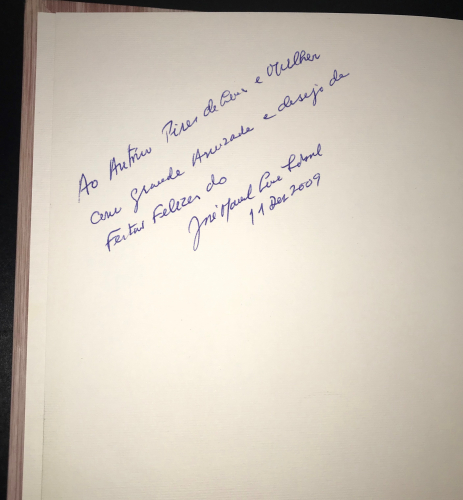 Ao António Pires de Lima e Mulher
com grande Amizade e desejo de
Festas Felizes do
José Manuel
11 Dez 2009